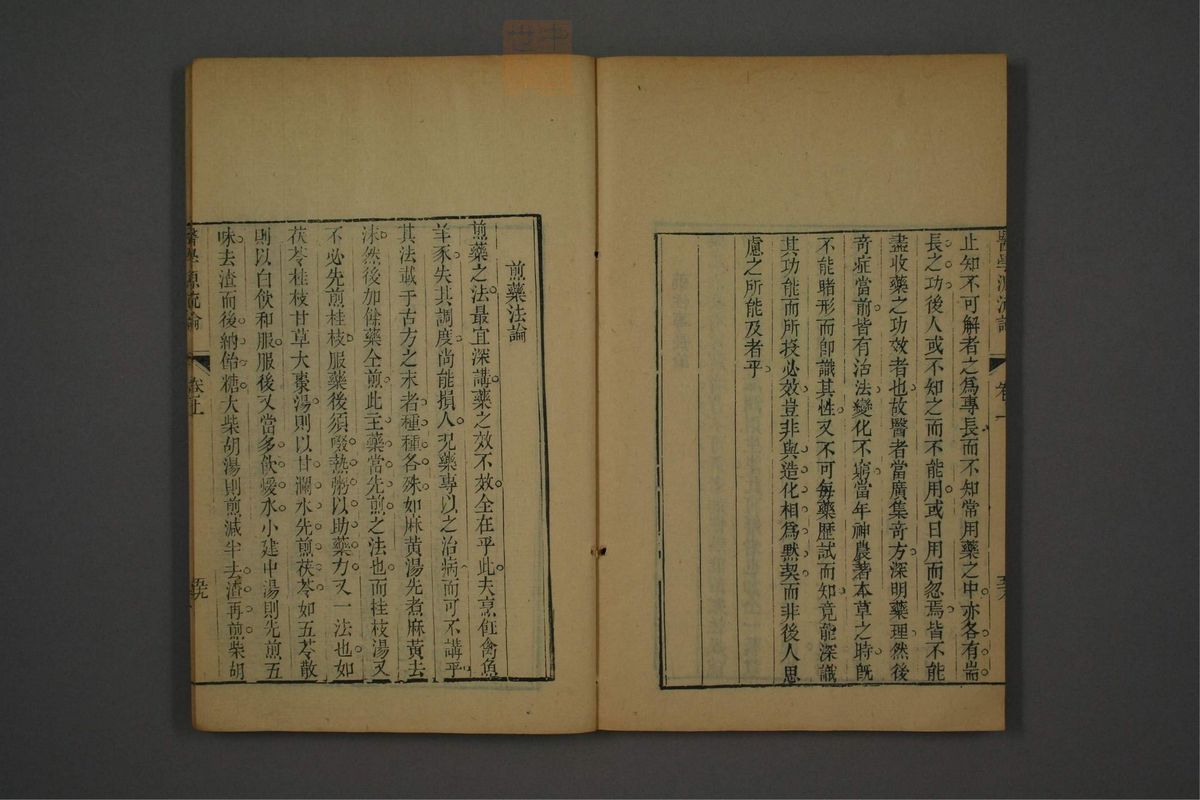 止知不可解者之爲專長而不知常用藥之中亦各有耑
長之功後人或不知之而不能用或日用而忽焉皆不能
盡收藥之功效者也故醫者當廣集奇方深明藥理然後
奇症當前皆有治法變化不窮當年神農著本草之時旣
不能睹形而卽識其性又不可每藥歷試而知竟能深識
其功能而所投必效豈非與造化相爲黙契而非後人思
慮之所能及者乎
煎藥法論
煎藥之法最宜深講藥之效不效全在乎此夫烹飪禽魚
羊豕失其調度尚能損人况藥專以之治病而可不講乎
其法載于古方之末者種種各殊如麻黃湯先煮麻黃去
沫然後加餘藥仝煎此主藥當先煎之法也而桂枝湯又
不必先煎桂枝服藥後須啜熱粥以助藥力又一法也如
茯苓桂枝甘草大棗湯則以甘瀾水先煎茯苓如五苓散
則以白飲和服服後又當多飲煖水小建中湯則先煎五
味去渣而後納飴糖大柴胡湯則煎減半去渣再煎柴胡
醫學源流論 卷上